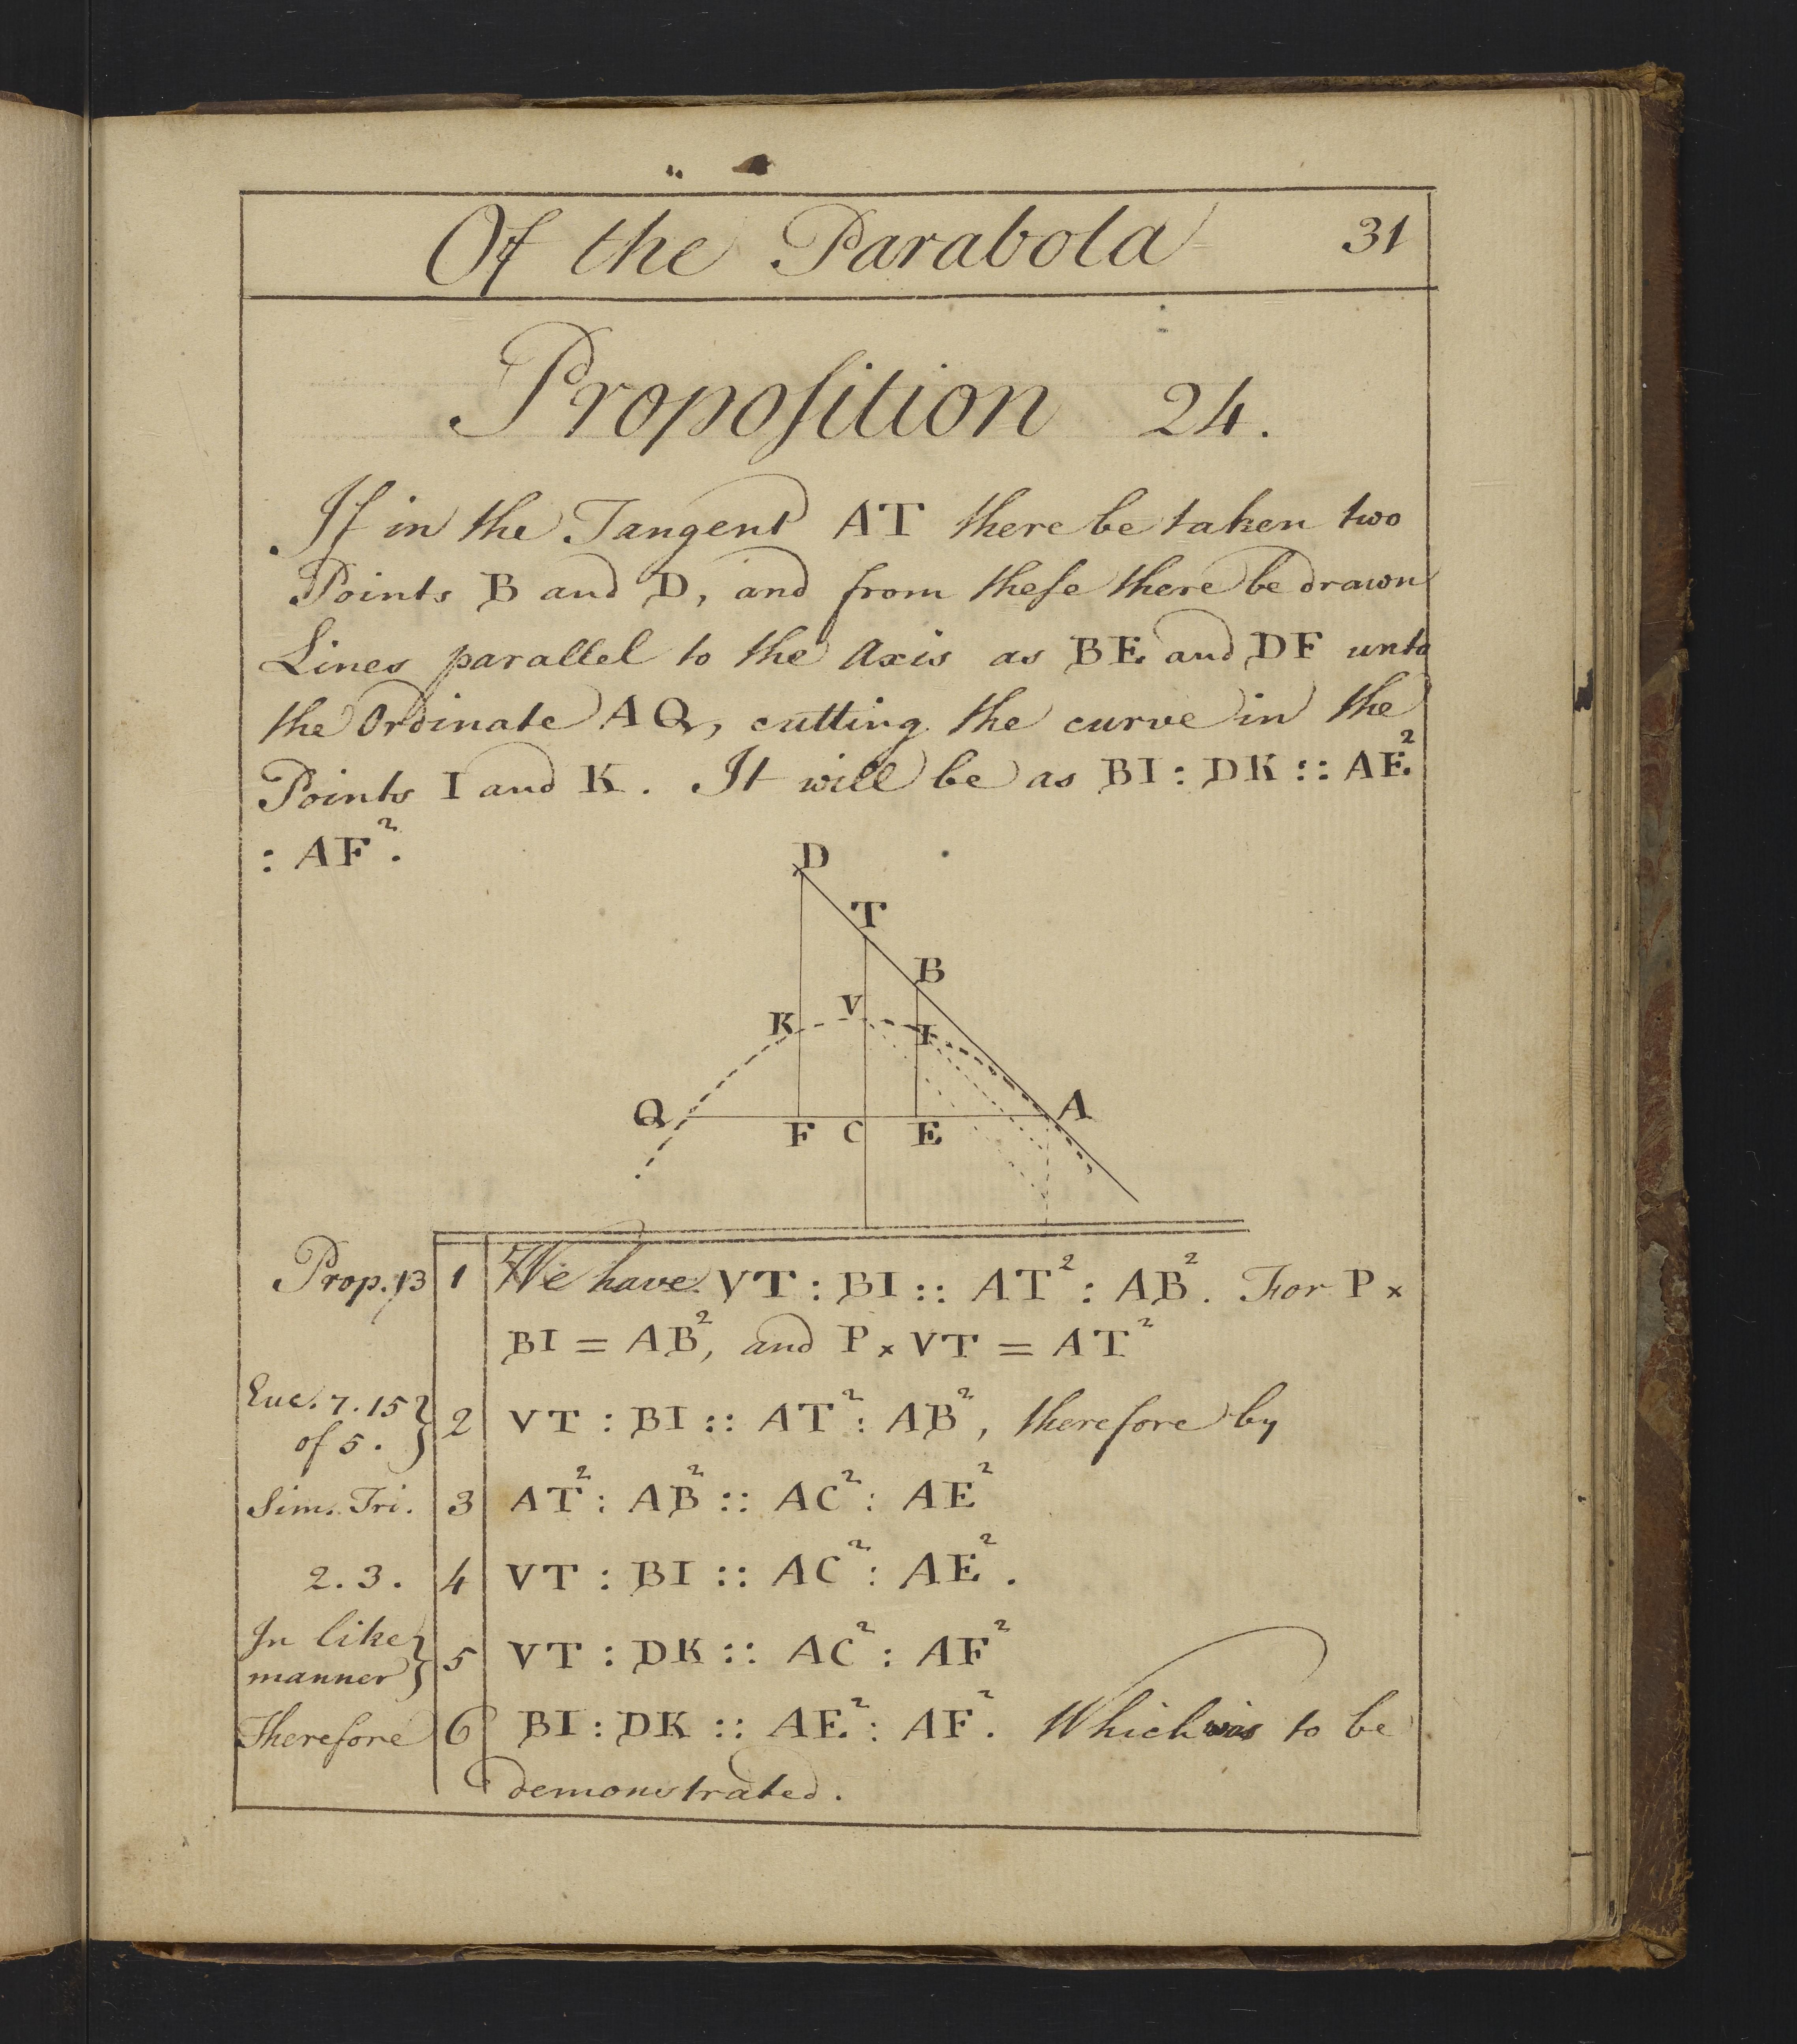 Of the Parabola 31
Propoſition 24.
If in the Tangent AT there be taken two
Points B and D, and from theſe there be drawn
Lines parallel to the Axis as BE and DF unto
the Ordinate AQ, cutting the curve in the
Points I and K. It will be as BI : DK :: AE²
: AF².
D
T
B
K V I
Q A
F C E
Prop. 13 1 We have VT : BI :: AT² : AB². For P ×
BI = AB², and P × VT = AT²
Euc. 7. 15 } 2 VT : BI :: AT² : AB², therefore by
of 5.
Sim. Tri. 3 AT² : AB² :: AC² : AE²
2. 3. 4 VT : BI :: AC² : AE².
In like } 5 VT : DK :: AC² : AF²
manner
Therefore 6 BI : DK :: AE² : AF². Which was to be
demonstrated.